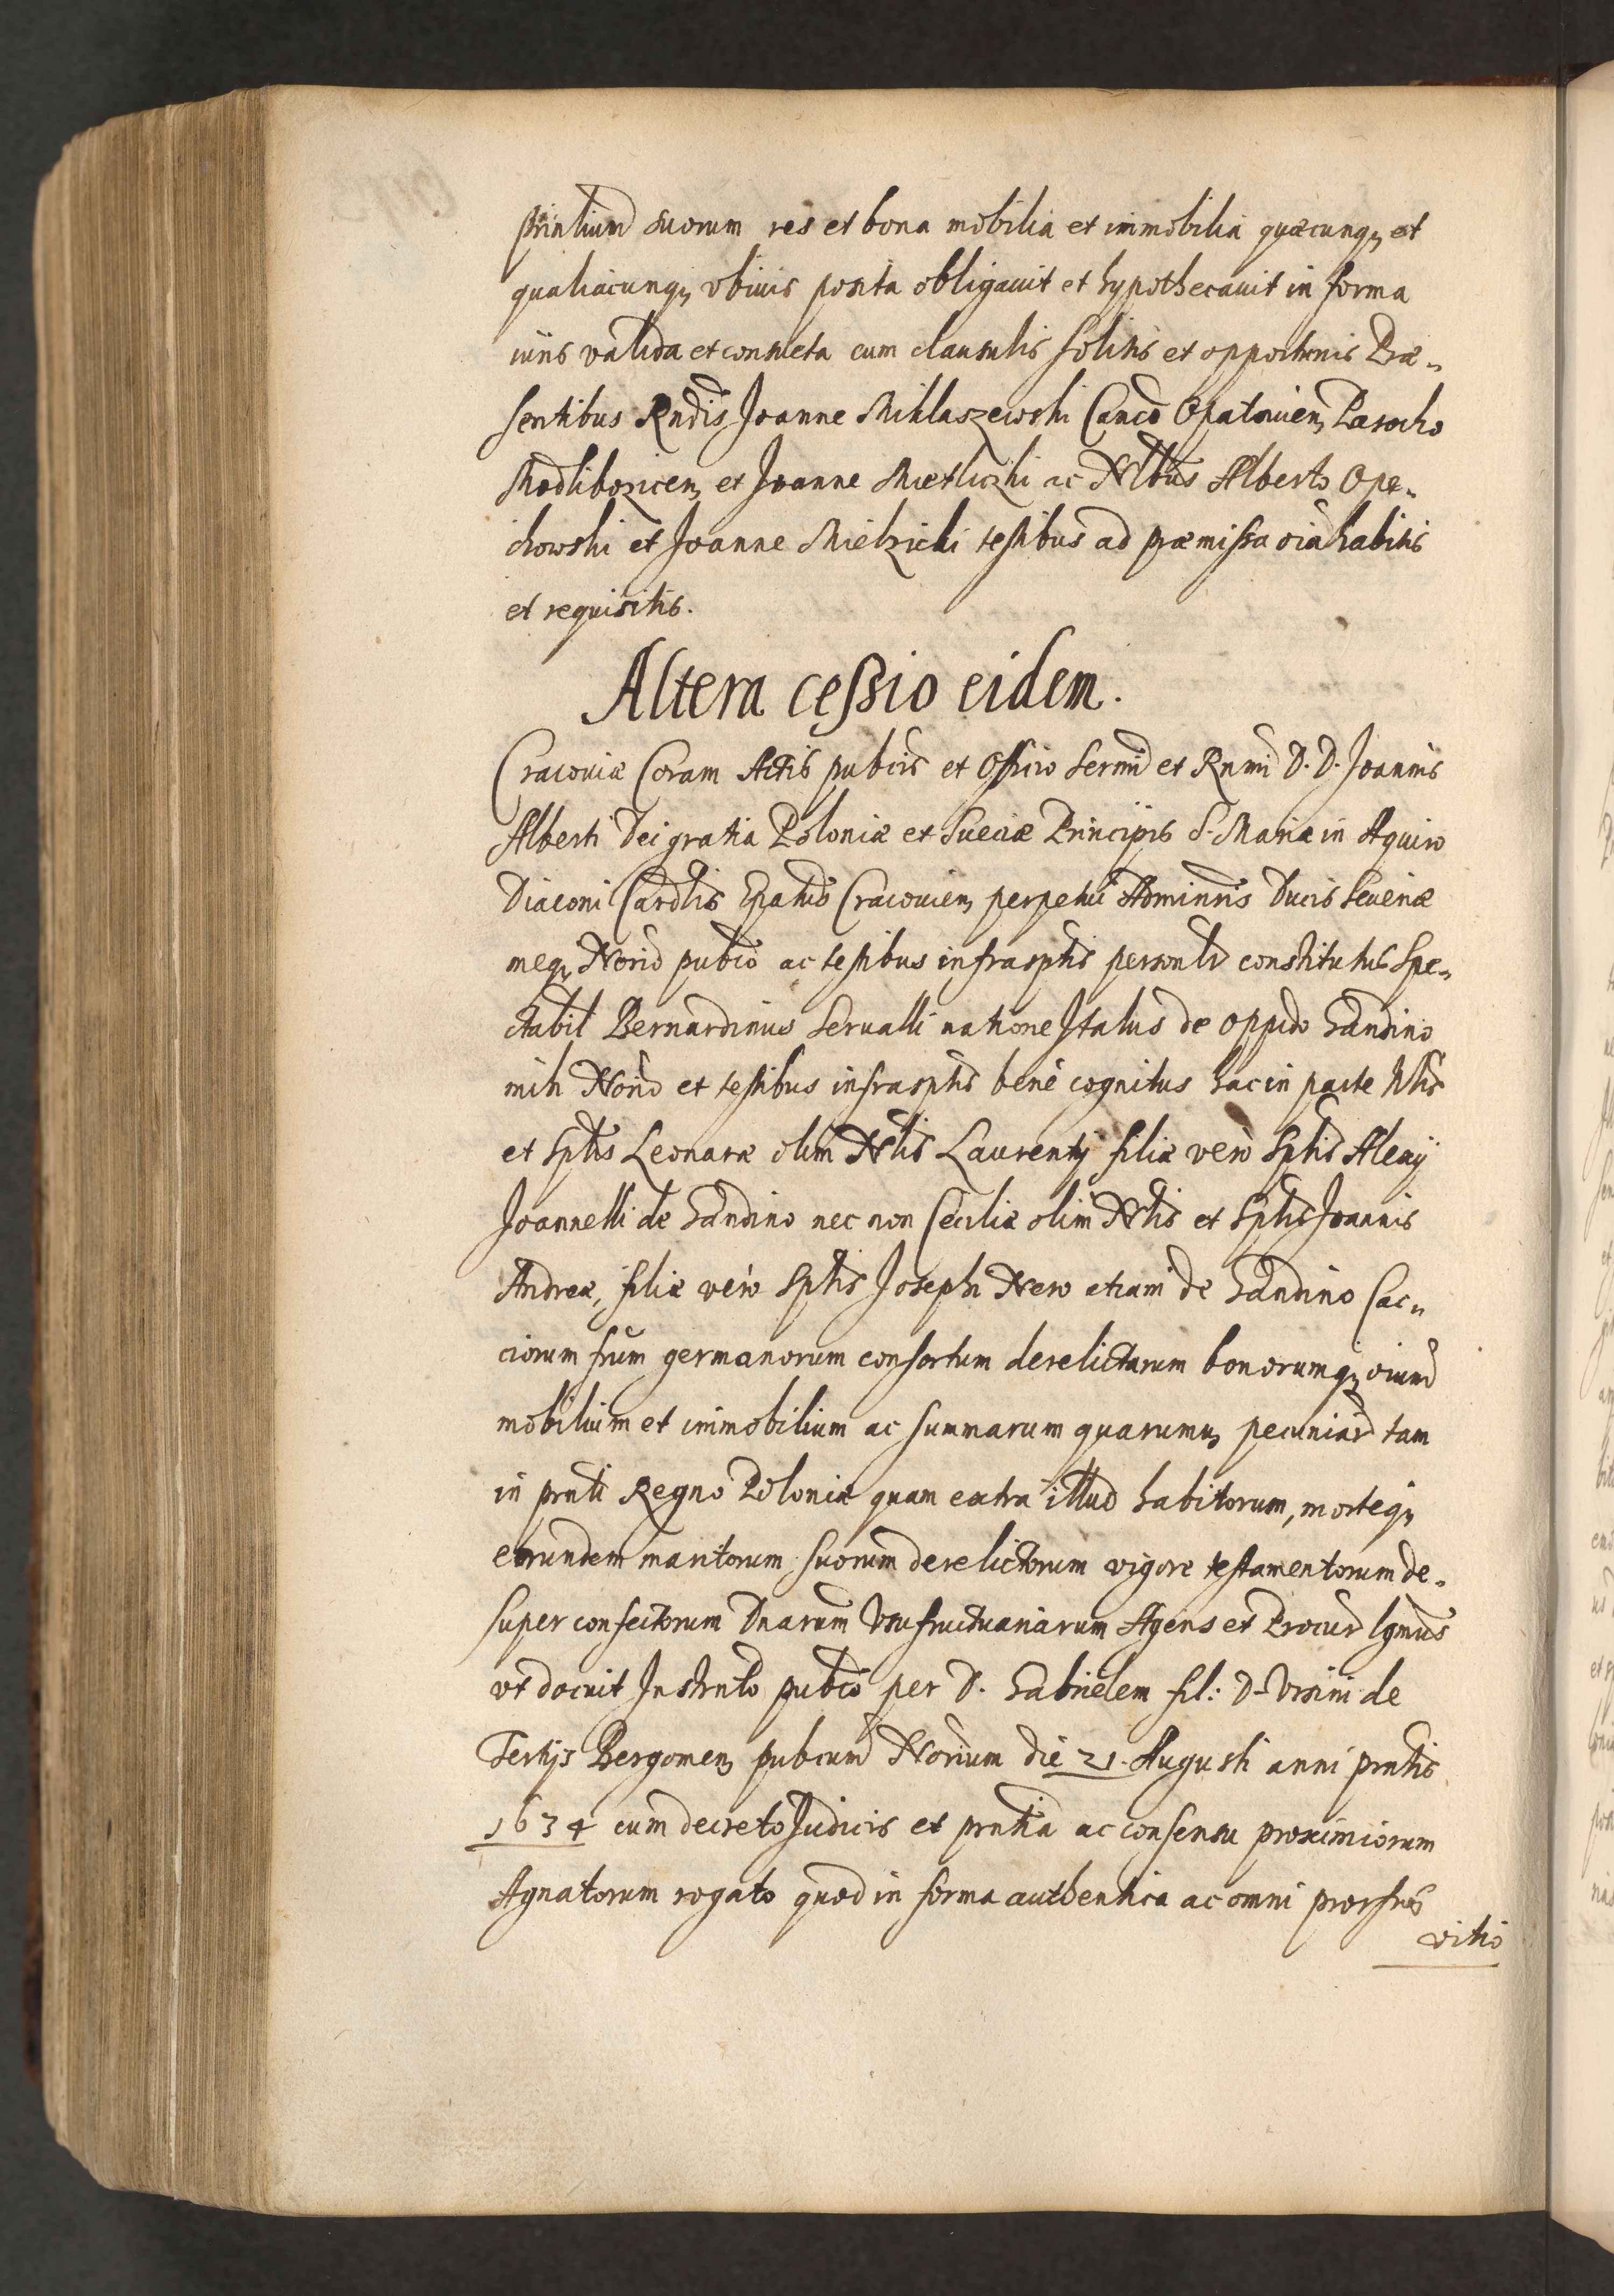 prinlium suorum res et bona mobilia et immobilia quæcunq et
qualiacunq vbiuis posita obligauit et hypothecauit in forma
iuris valida et consueta cum clausulis solitis et opportunis Præ-
sentibus Rndis Joanne Miklaszewski Canco Opatouien Parocho
Modliborzicen et Joanne Mietliczki ac Nlbus Alberto Ope-
chowski et Joanne Mielzicki testibus ad præmissa oia habitis
et requisitis.
Altera cessio eidem.
Cracouiæ Coram Actis pubcis et Officio Sermi et Rnmi D. D. Joannis
Alberti Dei gratia Poloniæ et Sueciæ Principis S. Mariæ in Aquiro
Diaconi Cardlis Epatus Cracouien perpetui Adminris Ducis Seueriæ
meq Norio pubco ac testibus infrasptis personlr constitutus Spe-
ctabil Bernardinus Serualli natione Italus de oppido Gandino
mihi Norio et testibus infrasptis bene cognitus hac in parte Nlis
et Splis Leonaræ olim Nlis Laurentij filiæ vero Splis Alexij
Joannelli de Gandino nec non Ceciliæ olim Nlis et Splis Joannis
Andreæ, filiæ vero Splis Josephi Nero etiam de Gandino Cac-
ciorum frum germanorum consortum derelictarum bonorumq oium
mobilium et immobilium ac summarum quarumuis pecuniar tam
in prnti Regno Poloniæ quam extra illud habitorum, morteq
eorundem maritorum suorum derelictorum vigore testamentorum de-
super confectorum Dnarum Vsufructuariarum Agens et Procur lgmus
vt docuit Instrnto pubco per D. Gabrielem fil: D. Vrsini de
Tertijs Bergomen pubcum Norium die 21. Augusti anni prntis
1634 cum decreto Judicis et prntia ac consensu proximiorum
Agnatorum rogato quod in forma authentica ac omni prorsus
vitio